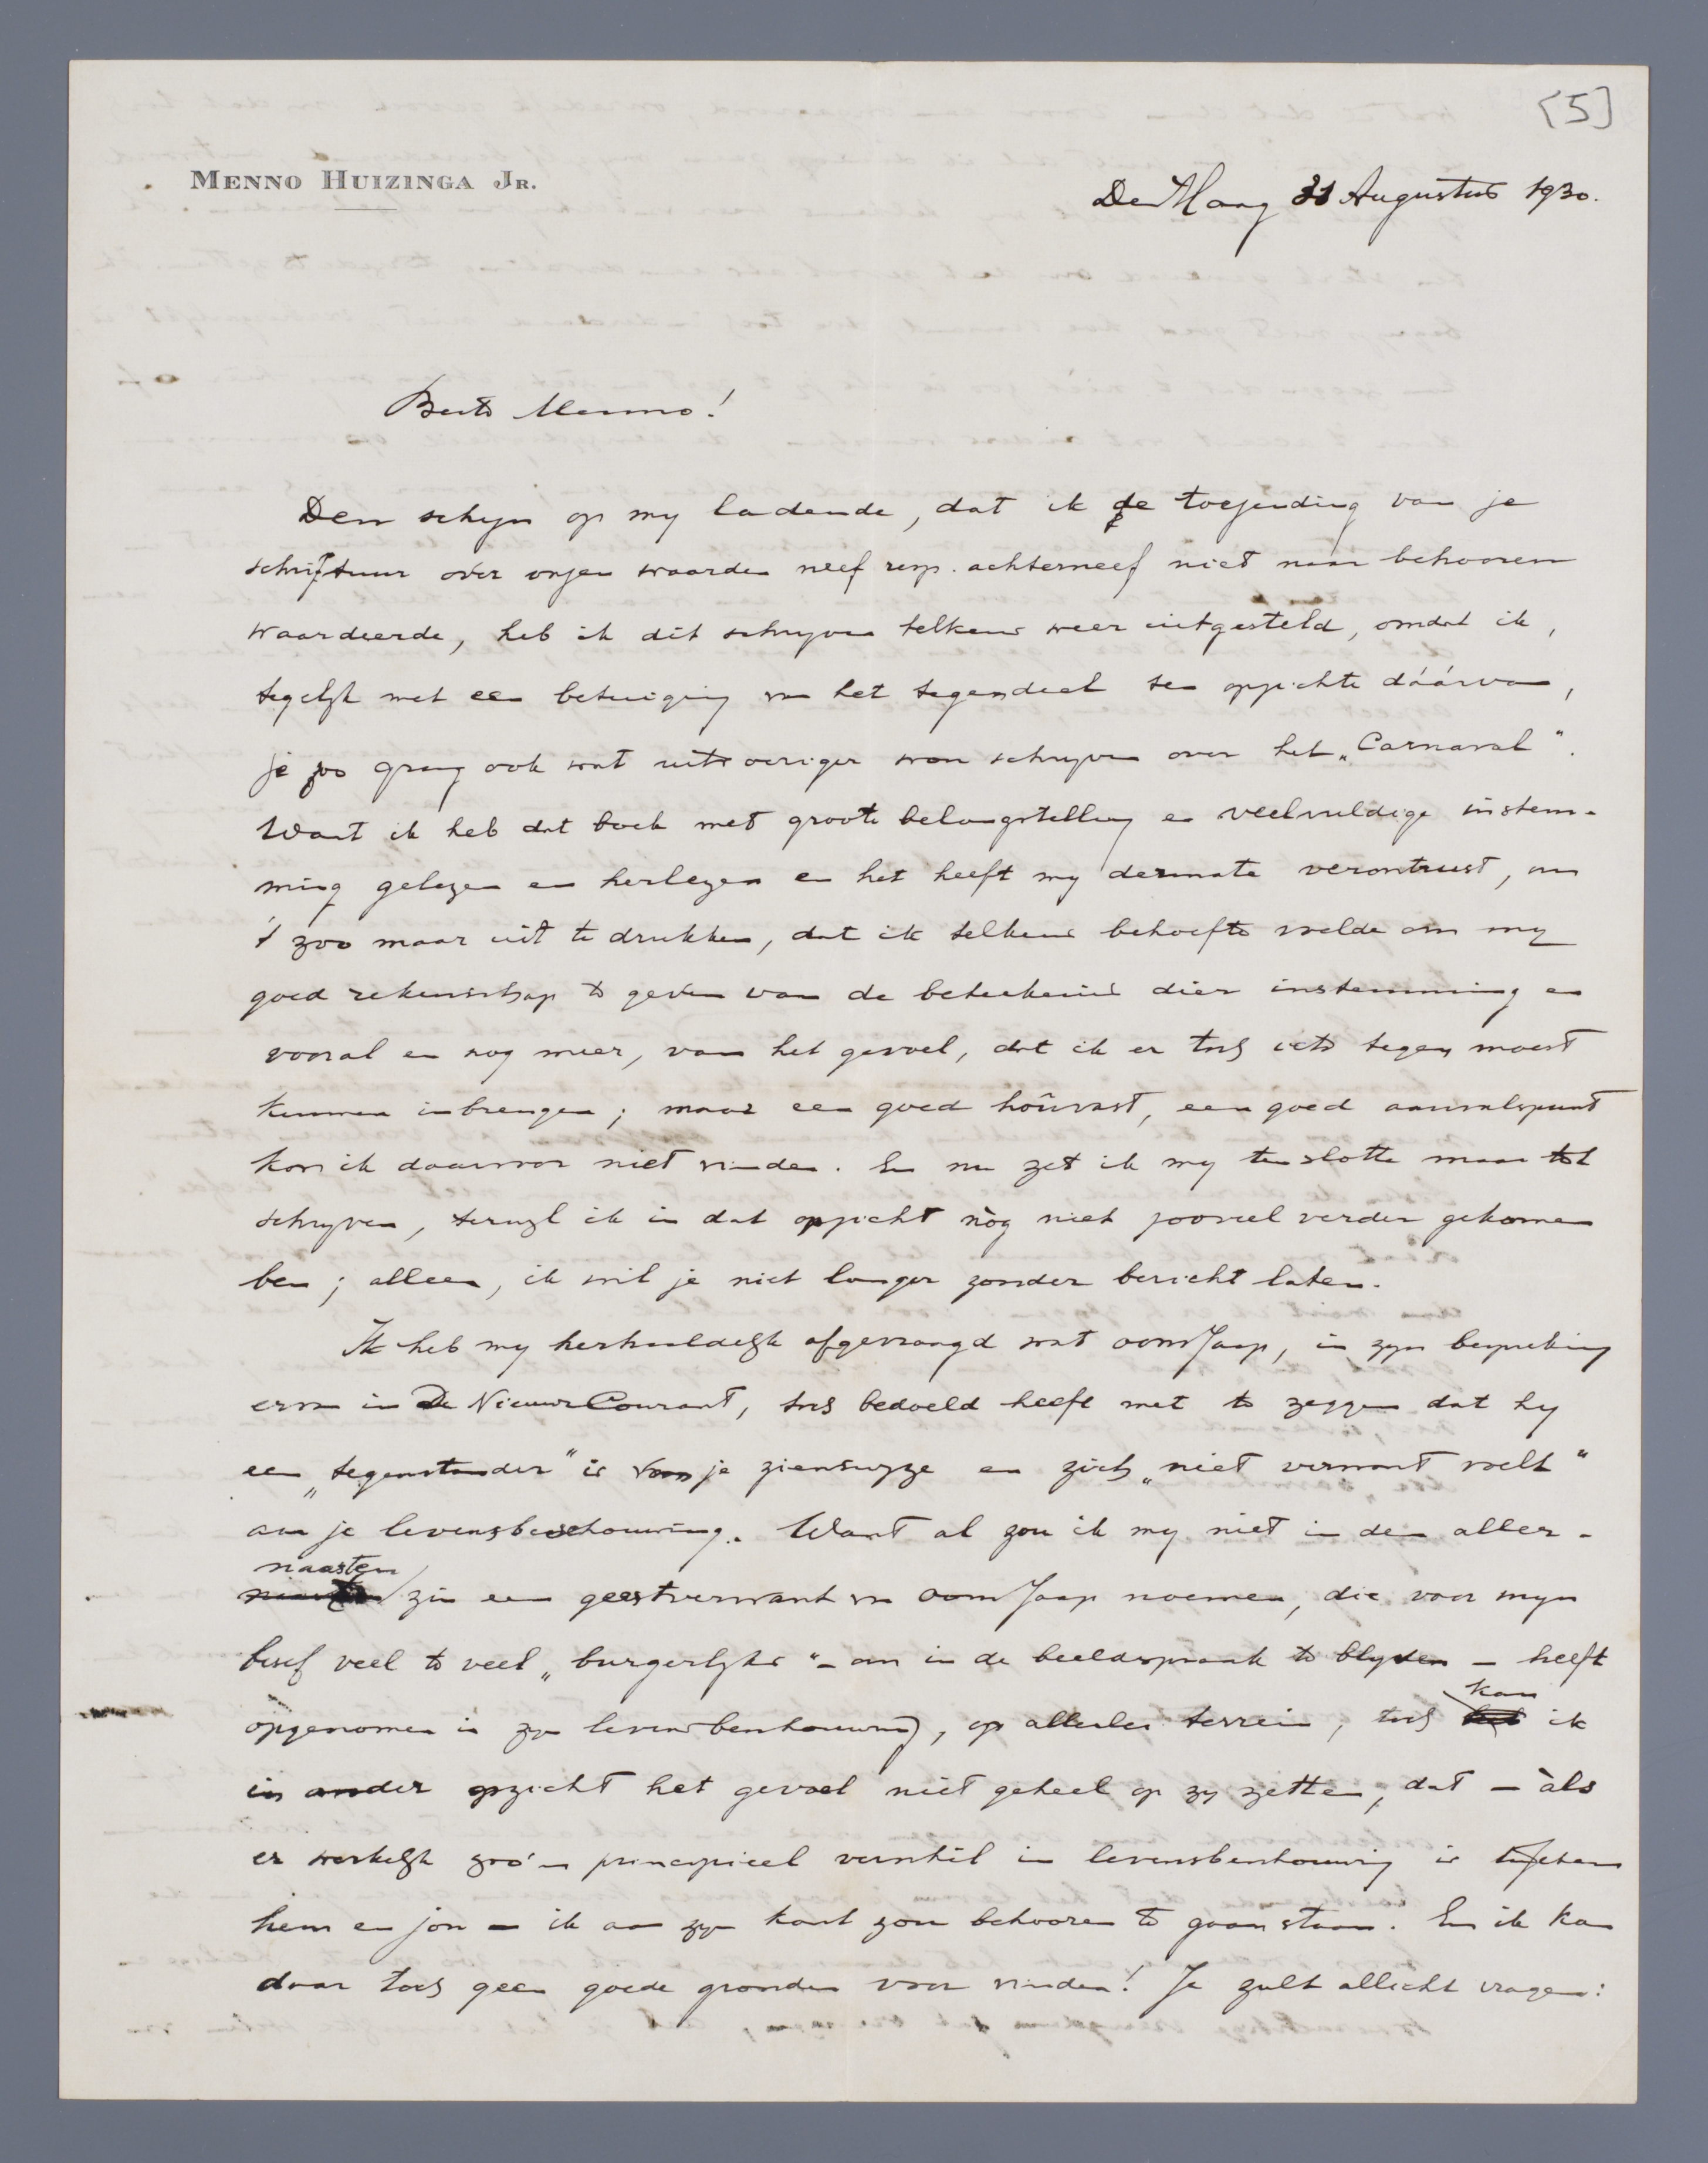 [5]
MENNO HUIZINGA JR.
Den Haag 31 Augustus 1930.
Beste Menno!
Den schijn op mij ladende, dat ik de toezending van je
schriftuur over onzen waarden neef resp. achterneef niet naar behooren
waardeerde, heb ik dit schrijven telkens weer uitgesteld, omdat ik,
tegelijk met een betuiging van het tegendeel ten opzichte dáárvan,
je zoo graag ook wat uitvoeriger wou schrijven over het „Carnaval".
Want ik heb dat boek met groote belangstelling en veelvuldige instem-
ming gelezen en herlezen en het heeft mij dermate verontrust, om
't zoo maar uit te drukken, dat ik telkens behoefte voelde om mij
goed rekenschap te geven van de beteekenis dier instemming en
vooral en nog meer, van het gevoel, dat ik er toch iets tegen moest
kunnen inbrengen; maar een goed houvast, een goed aanvalspunt
kon ik daarvoor niet vinden. En nu zet ik mij ten slotte maar tot
schrijven, terwijl ik in dat opzicht nòg niet zooveel verder gekomen
ben; alleen, ik wil je niet langer zonder bericht laten.
Ik heb mij herhaaldelijk afgevraagd wat oom Jaap, in zijn bespreking
ervan in De Nieuwe Courant, toch bedoeld heeft met te zeggen dat hij
een „tegenstander" is van je zienswijze en zich „niet verwant voelt"
aan je levensbeschouwing. Want al zou ik mij niet in den aller-
naasten zin een geestverwant van oom Jaap noemen, die voor mijn
besef veel te veel „burgerlijks" – om in de beeldspraak te blijven – heeft
opgenomen in zijn levensbeschouwing, op allerlei terrein, toch kan ik
in ander opzicht het gevoel niet geheel op zij zetten, dat – àls
er werkelijk zoo'n principieel verschil in levensbeschouwing is tusschen
hem en jou – ik aan zijn kant zou behooren te gaan staan. En ik kan
daar toch geen goede gronden voor vinden! Je zult allicht vragen: